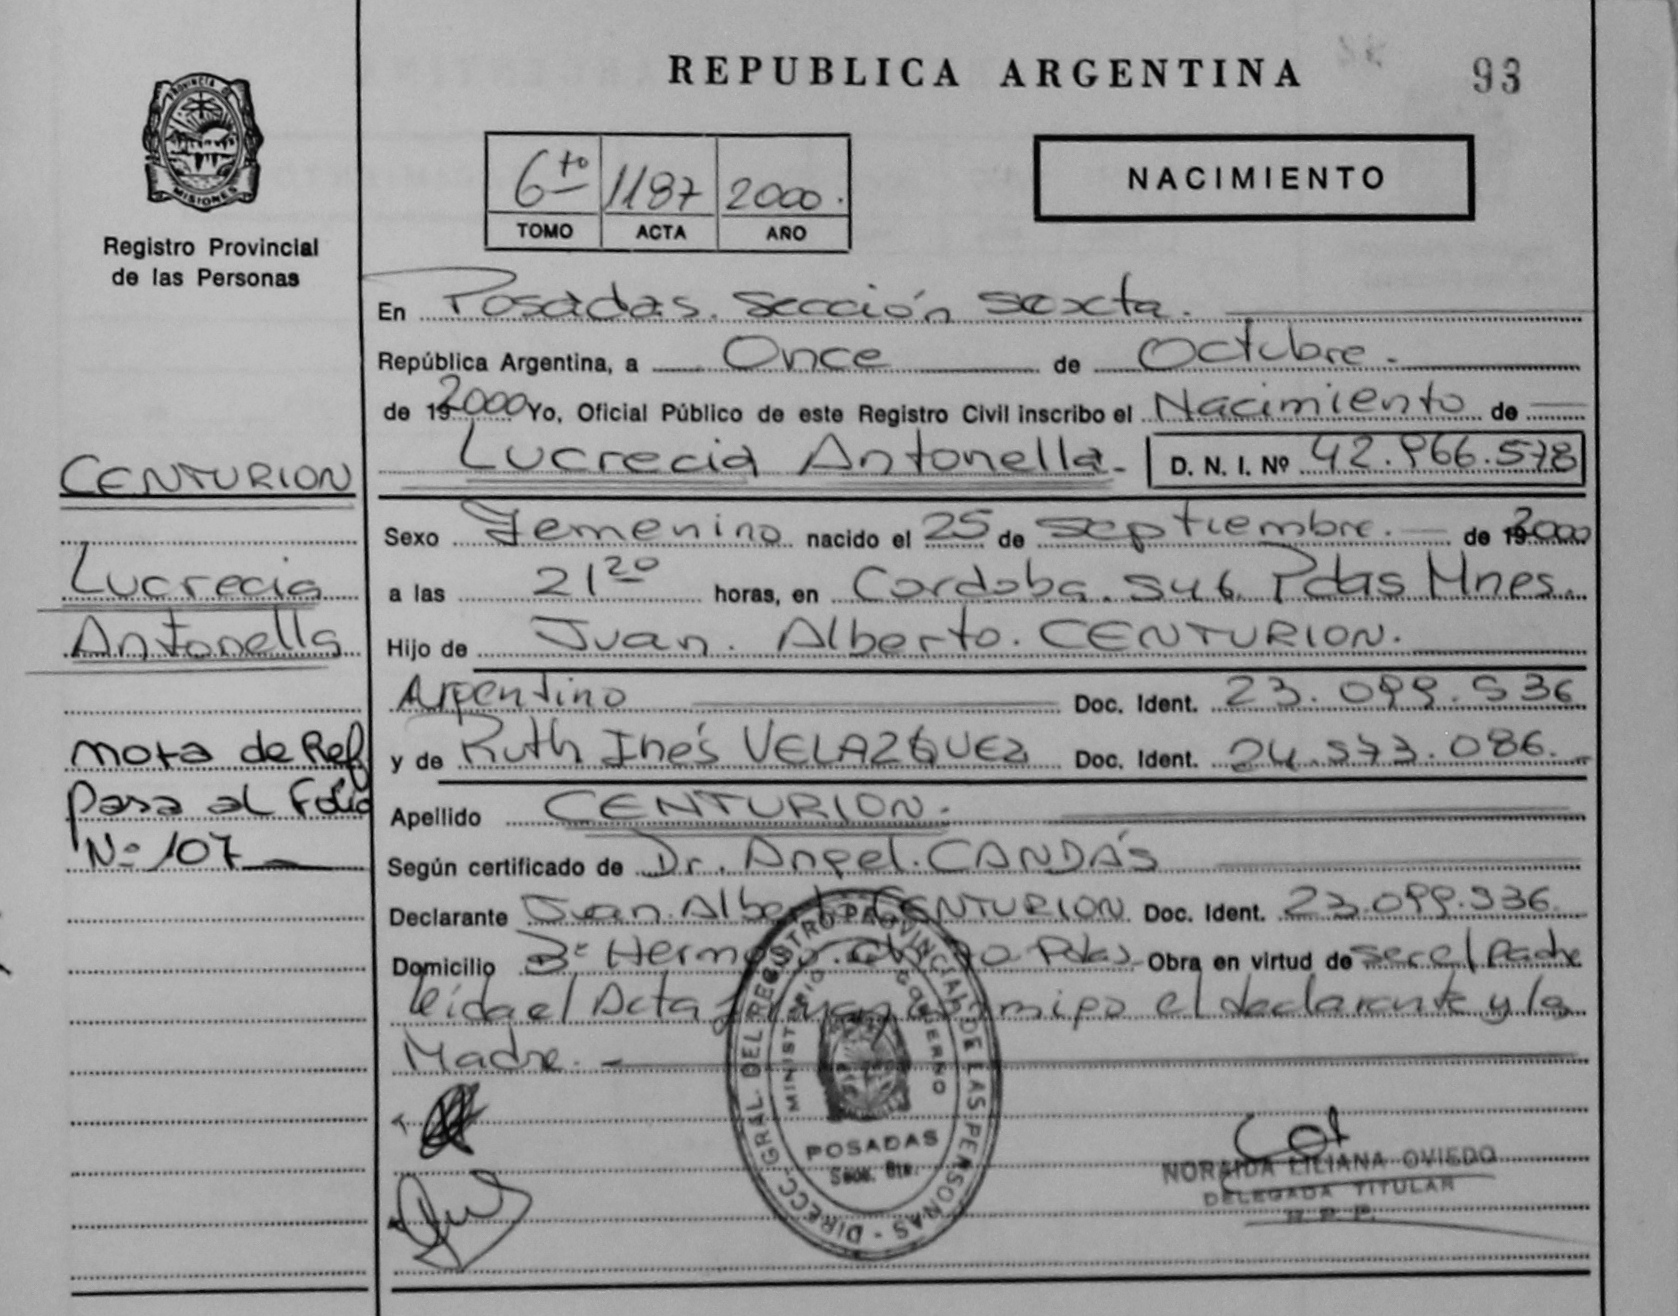 REPUBLICA ARGENTINA
93
PROVINCIA DE
MISIONES
Registro Provincial
de las Personas
6to 1187 2000.
TOMO ACTA AÑO
NACIMIENTO
En Posadas. Sección Sexta.
República Argentina, a Once de Octubre.
de 192000 Yo, Oficial Público de este Registro Civil inscribo el Nacimiento de
Lucrecia Antonella. D. N. I. Nº 42.966.578
CENTURION
Lucrecia
Antonella
Sexo Femenino nacido el 25 de Septiembre. de 2000
a las 21 20 horas, en Cordoba. 546. Pdas Mnes.
Hijo de Juan. Alberto. CENTURION.
Argentino Doc. Ident. 23.099.536
y de Ruth Inés VELAZQUEZ Doc. Ident. 24.573.086.
nota de Ref
Pasa al Folio
Nº 107
Apellido CENTURION.
Según certificado de Dr. Angel. CANDÁS
Declarante Juan. Alberto CENTURION. Doc. Ident. 23.099.536.
Domicilio Pdas Obra en virtud de ser el Padre
leida el Acta firman conmigo el declarante y la
Madre.
DIRECC. GRAL. DEL REGISTRO PROVINCIAL DE LAS PERSONAS
MINISTERIO GOBIERNO
POSADAS
Secc. 6ta.
NORAIDA LILIANA OVIEDO
DELEGADA TITULAR
R. P. P.